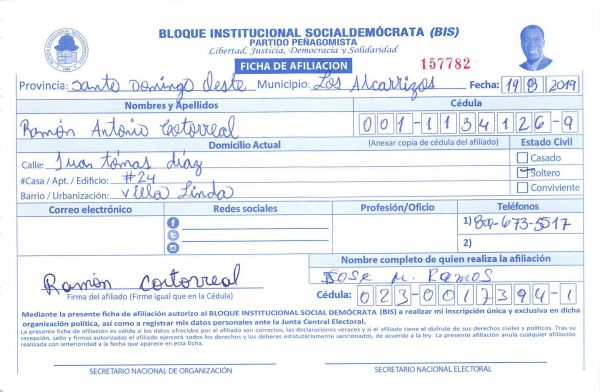 BLOQUE INSTITUCIONAL SOCIALDEMÓCRATA (BIS)
PARTIDO PEÑAGOMISTA
Libertad, Justicia, Democracia y Solidaridad
FICHA DE AFILIACION
157782
Provincia: Santo Domingo Oeste Municipio: Los Alcarrizos Fecha: 19 8 2019
Nombres y Apellidos Cédula
Ramón Antonio Cortorreal 001-1134126-9
Domicilio Actual (Anexar copia de cédula del afiliado) Estado Civil
Calle: Juan tómas díaz Casado
#Casa / Apt. / Edificio: #24 Soltero
Barrio / Urbanización: Villa Linda Conviviente
Correo electrónico Redes sociales Profesión/Oficio Teléfonos
1) 809-673-5517
2)
Nombre completo de quien realiza la afiliación
Ramón Cortorreal Jose M. Ramos
Firma del afiliado (Firme igual que en la Cédula) Cédula: 023-0017394-1
Mediante la presente ficha de afiliación autorizo al BLOQUE INSTITUCIONAL SOCIAL DEMÓCRATA (BIS) a realizar mi inscripción única y exclusiva en dicha
organización política, así como a registrar mis datos personales ante la Junta Central Electoral.
La presente ficha de afiliación es válida si los datos ofrecidos por el afiliado son correctos, las declaraciones veraces y si el afiliado tiene el disfrute de sus derechos civiles y políticos. Tras su
recepción, sello y firmas autorizadas el afiliado ejercerá todos los derechos y los deberes estatutariamente sancionados, de acuerdo a la ley. La presente afiliación anula cualquier afiliación
realizada con anterioridad a la fecha que aparece en esta ficha.
SECRETARIO NACIONAL DE ORGANIZACIÓN SECRETARIO NACIONAL ELECTORAL